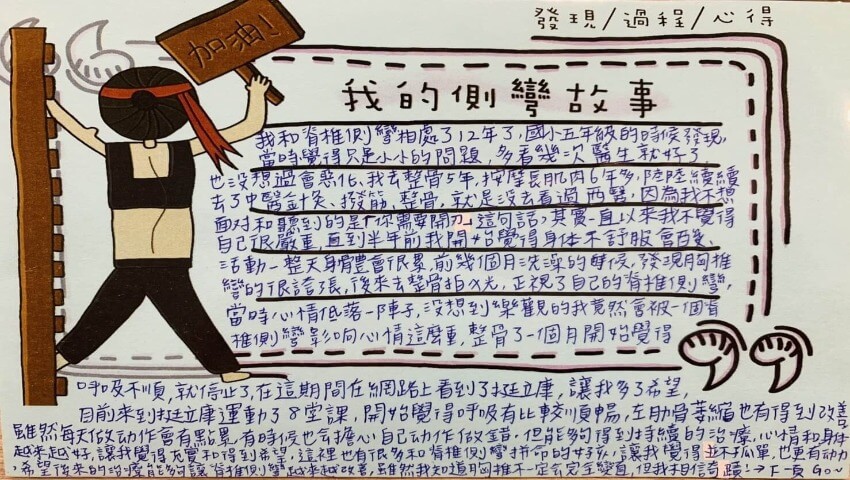 發現/過程/心得
加油!
我的側彎故事
我和脊椎側彎相處了12年了,國小五年級的時候發現,
當時覺得只是小小的問題,多看幾次醫生就好了,
也沒想過會惡化、我去整骨5年,按摩長肌肉6年多,陸陸續續
去了中醫針灸、撥筋、整骨,就是沒去看過西醫,因為我不想
面對和聽到的是「你需要開刀」這句話,其實一直以來我不覺得
自己很嚴重,直到半年前我開始覺得身体不舒服會痠、
活動一整天身體會很累,前幾個月洗澡的時候,發現胸椎
彎的很誇張,後來去整骨拍X光,正視了自己的脊椎側彎,
當時心情低落一陣子,沒想到樂觀的我竟然會被一個脊
椎側彎影响心情這麼重,整骨了一個月開始覺得
呼及不順,就停止了,在這期間在網路上看到了挺立庫,讓我多了希望,
目前來到挺立庫運動了8堂課,開始覺得呼吸有比較順暢,左肋骨萎縮也有得到改善
雖然每天做动作會有點累,有時候也会擔心自己动作做錯,但能夠得到持續的治療,心情和身体
越來越好,讓我覺得充實和得到希望,這裡也有很多和脊椎側彎拼命的好孩,讓我覺得並不孤單,也更有动力
,希望後來的治療能夠讓脊椎側彎越來越改善,雖然我知道胸椎不一定会完全變直,但我相信奇蹟!→下一頁 Go~